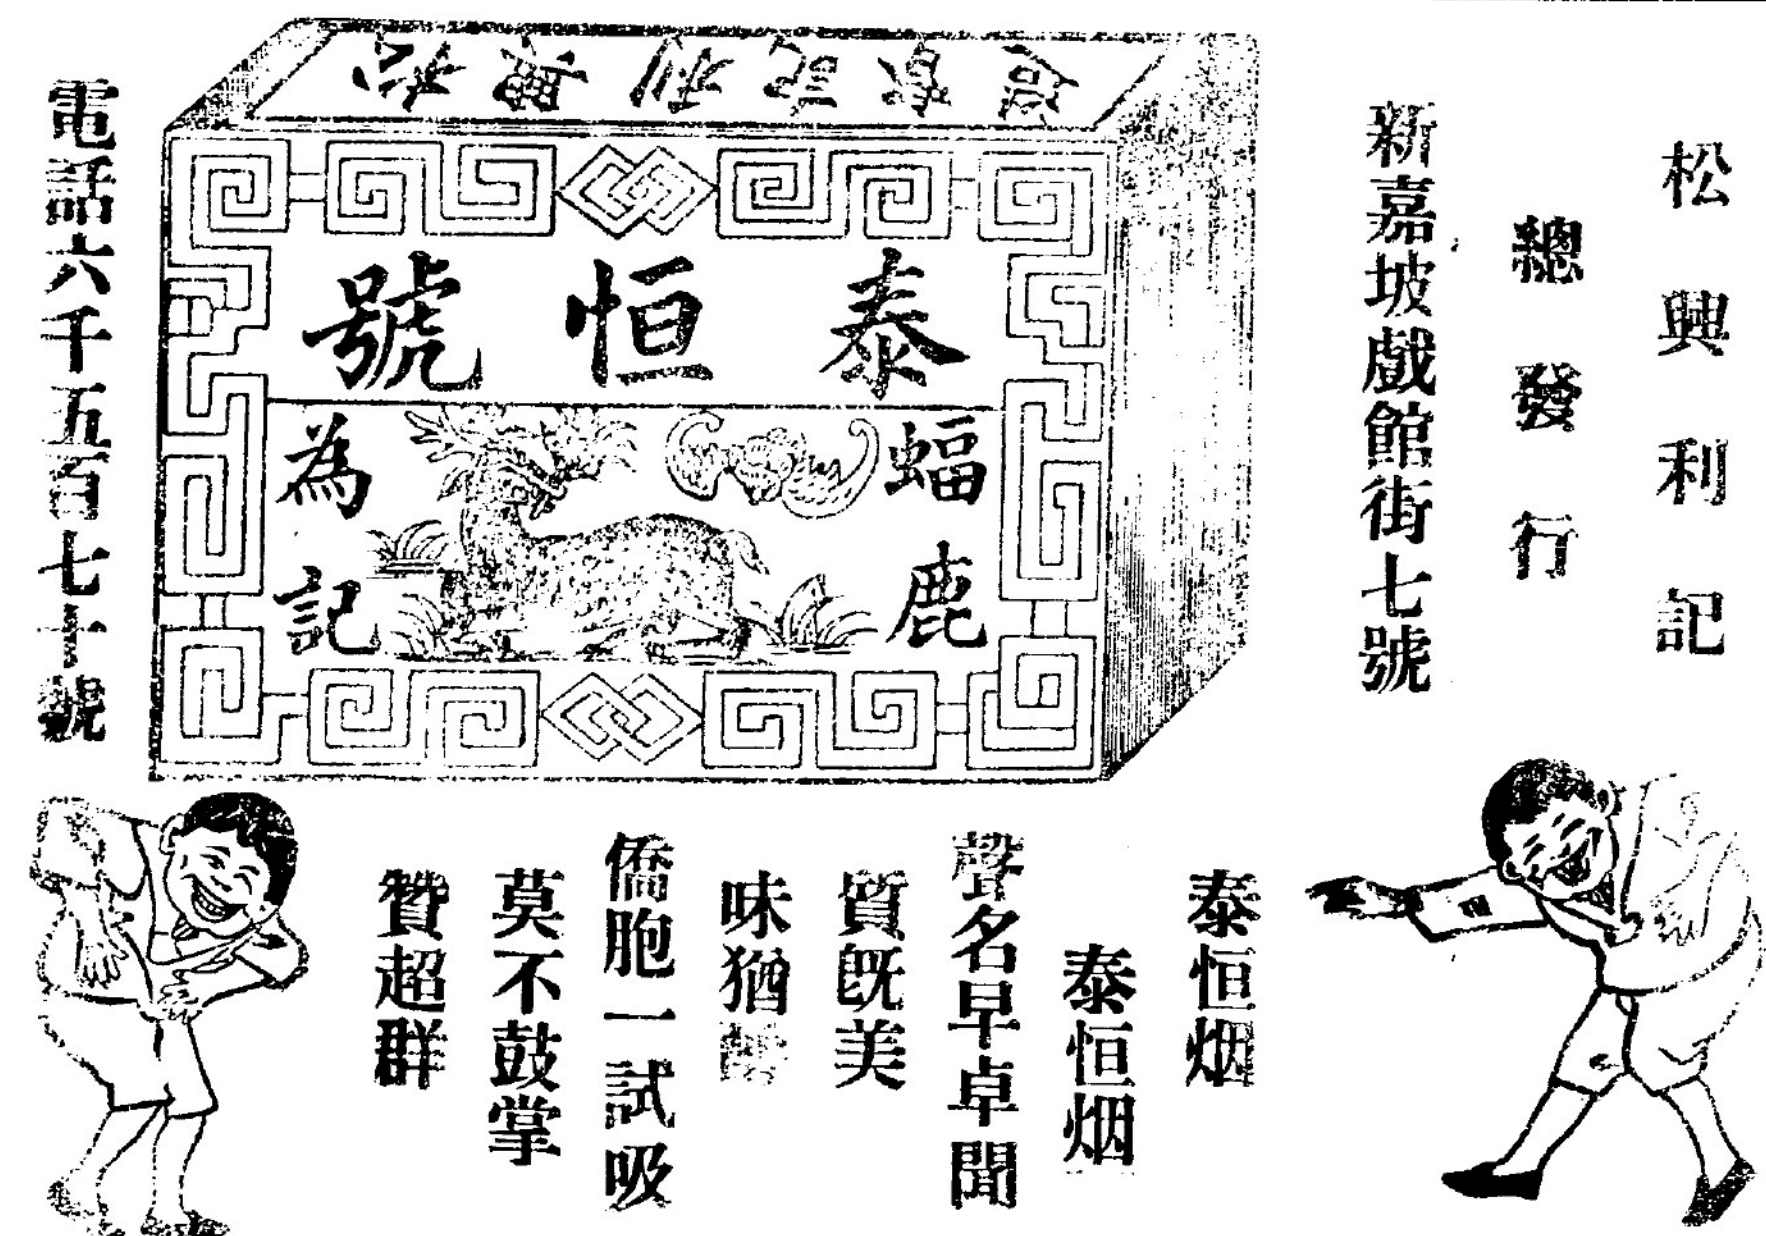 松興利記
總發行
新嘉坡戲館街七號
泰恒號
蝠鹿
為記
電話六千五百七十號
泰恒烟
泰恒烟
聲名早卓聞
質既美
味猶
僑胞一試吸
莫不鼓掌
贊超群